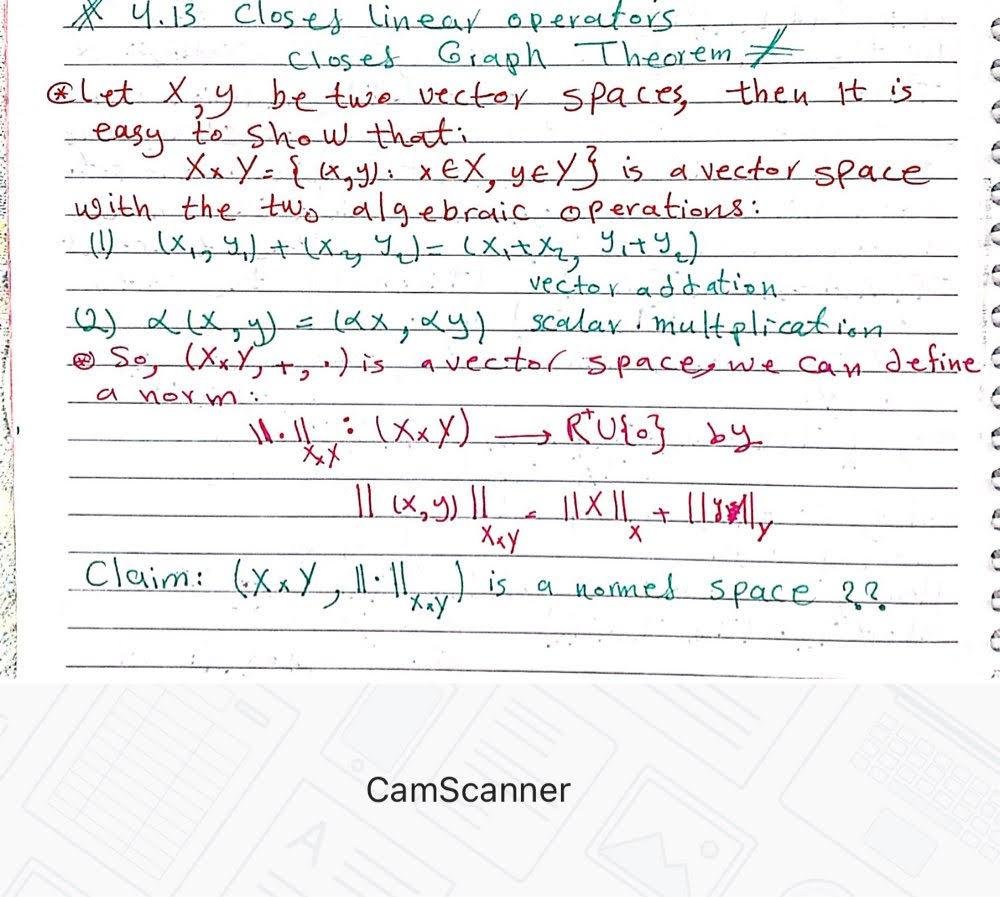 * 4.13 Closes linear operators
Closes Graph Theorem *
⊛ Let X, y be two vector spaces, then It is
easy to show that:
X×Y = { (x,y): x∈X, y∈Y} is a vector space
with the two algebraic operations:
(1) (x₁, y₁) + (x₂, y₂) = (x₁+x₂, y₁+y₂)
vector addtation
(2) α(x,y) = (αx, αy) scalar multplication
⊛ So, (X×Y, +, ·) is a vector space, we can define
a norm:
||·||_{X×X} : (X×X) → R⁺∪{0} by
|| (x,y) ||_{X×Y} = ||X||_X + ||y||_Y
Claim: (X×Y, ||·||_{X×Y}) is a normed space ??
CamScanner